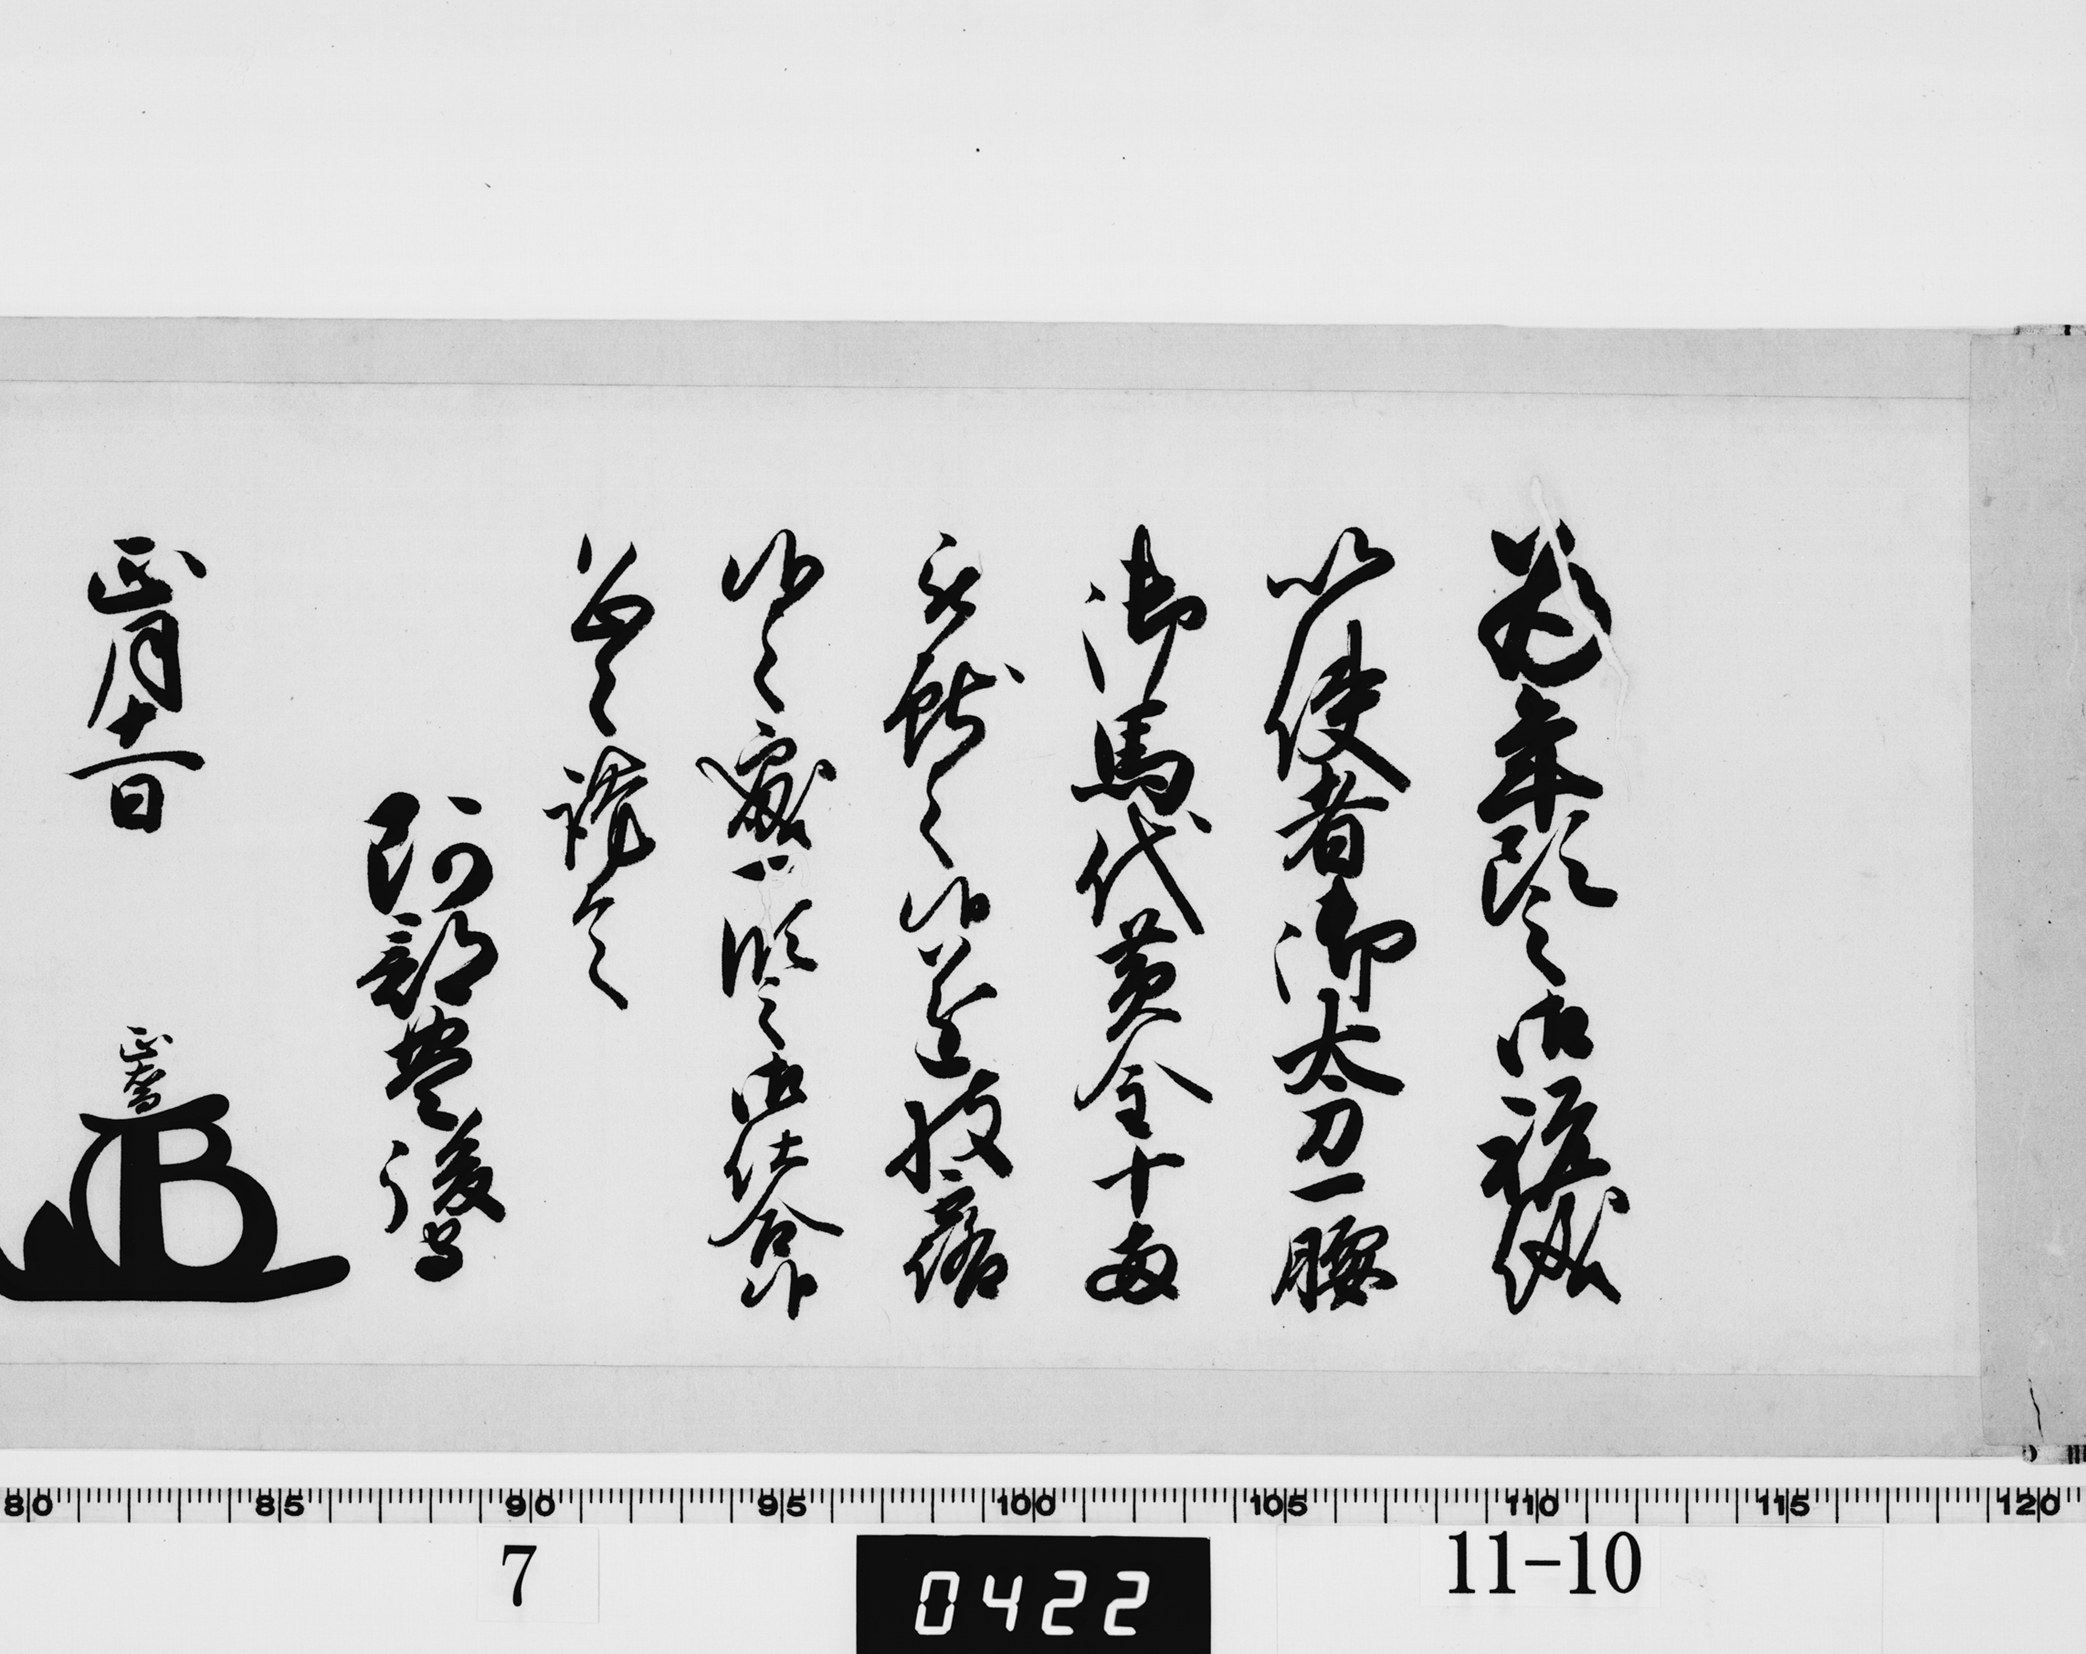 為年頭之御祝儀
以使者御太刀一腰
御馬代黄金十両
被献之候遂披露
候之處一段之御仕合候
恐々謹言
阿部豊後守
正月十一日
正喬
80 85 90 95 100 105 110 115 120
7
0422
11-10